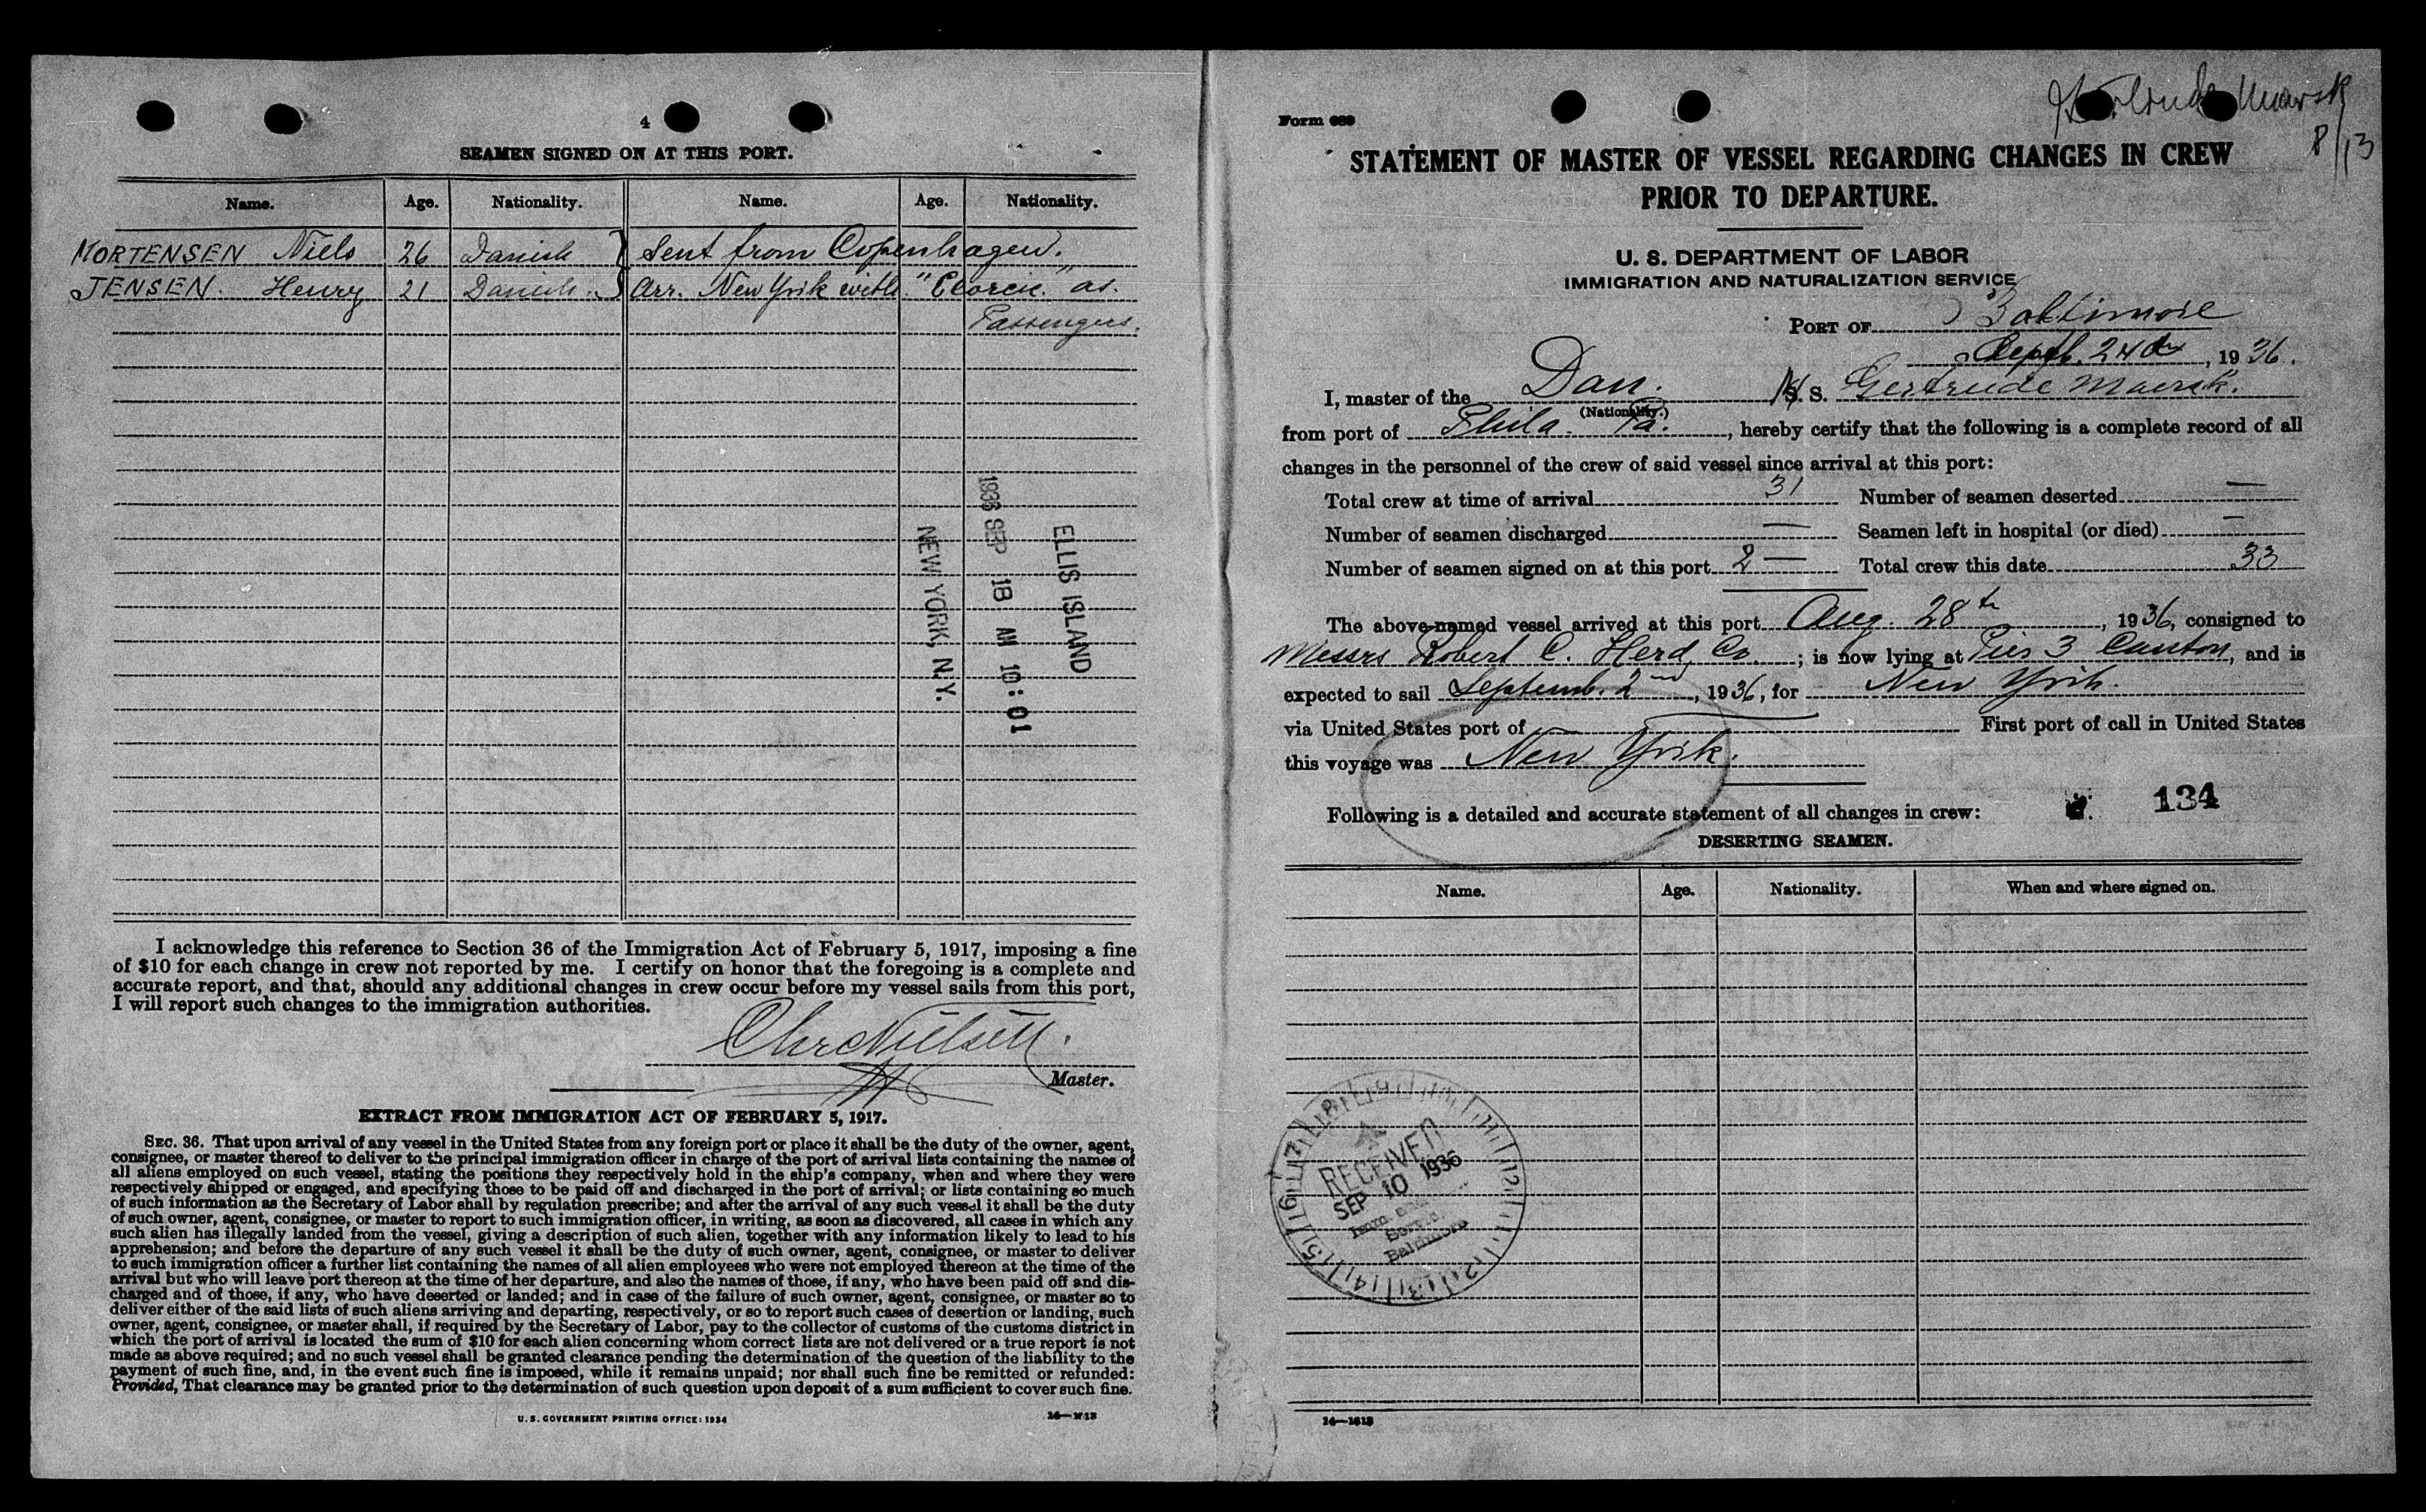 4
SEAMEN SIGNED ON AT THIS PORT.
Name. Age. Nationality. Name. Age. Nationality.
MORTENSEN Niels 26 Danish } Sent from Copenhagen.
JENSEN. Henry 21 Danish. } Arr. New York with " " as.
Passengers.
ELLIS ISLAND
1936 SEP 18 AM 10:01
NEW YORK, N.Y.
I acknowledge this reference to Section 36 of the Immigration Act of February 5, 1917, imposing a fine
of $10 for each change in crew not reported by me. I certify on honor that the foregoing is a complete and
accurate report, and that, should any additional changes in crew occur before my vessel sails from this port,
I will report such changes to the immigration authorities.
Chr Nielsen.
Master.
EXTRACT FROM IMMIGRATION ACT OF FEBRUARY 5, 1917.
SEC. 36. That upon arrival of any vessel in the United States from any foreign port or place it shall be the duty of the owner, agent,
consignee, or master thereof to deliver to the principal immigration officer in charge of the port of arrival lists containing the names of
all aliens employed on such vessel, stating the positions they respectively hold in the ship's company, when and where they were
respectively shipped or engaged, and specifying those to be paid off and discharged in the port of arrival; or lists containing so much
of such information as the Secretary of Labor shall by regulation prescribe; and after the arrival of any such vessel it shall be the duty
of such owner, agent, consignee, or master to report to such immigration officer, in writing, as soon as discovered, all cases in which any
such alien has illegally landed from the vessel, giving a description of such alien, together with any information likely to lead to his
apprehension; and before the departure of any such vessel it shall be the duty of such owner, agent, consignee, or master to deliver
to such immigration officer a further list containing the names of all alien employees who were not employed thereon at the time of the
arrival but who will leave port thereon at the time of her departure, and also the names of those, if any, who have been paid off and dis-
charged and of those, if any, who have deserted or landed; and in case of the failure of such owner, agent, consignee, or master so to
deliver either of the said lists of such aliens arriving and departing, respectively, or so to report such cases of desertion or landing, such
owner, agent, consignee, or master shall, if required by the Secretary of Labor, pay to the collector of customs of the customs district in
which the port of arrival is located the sum of $10 for each alien concerning whom correct lists are not delivered or a true report is not
made as above required; and no such vessel shall be granted clearance pending the determination of the question of the liability to the
payment of such fine, and, in the event such fine is imposed, while it remains unpaid; nor shall such fine be remitted or refunded:
Provided, That clearance may be granted prior to the determination of such question upon deposit of a sum sufficient to cover such fine.
U. S. GOVERNMENT PRINTING OFFICE: 1934
Maersk
8/13
Form 689
STATEMENT OF MASTER OF VESSEL REGARDING CHANGES IN CREW
PRIOR TO DEPARTURE.
U. S. DEPARTMENT OF LABOR
IMMIGRATION AND NATURALIZATION SERVICE
PORT OF Baltimore
Septb. 2nd, 1936.
I, master of the Dan. M S. S. Gertrude Maersk.
(Nationality.)
from port of Phila. Pa., hereby certify that the following is a complete record of all
changes in the personnel of the crew of said vessel since arrival at this port:
Total crew at time of arrival 31 Number of seamen deserted —
Number of seamen discharged — Seamen left in hospital (or died) —
Number of seamen signed on at this port 2 — Total crew this date 33
The above-named vessel arrived at this port Aug. 28th, 1936, consigned to
Messrs Robert C. Herd Co.; is now lying at Pier 3 Canton, and is
expected to sail Septemb. 2nd, 1936, for New York.
via United States port of — First port of call in United States
this voyage was New York.
Following is a detailed and accurate statement of all changes in crew: 134
DESERTING SEAMEN.
Name. Age. Nationality. When and where signed on.
RECEIVED
SEP 10 1936
Baltimore
14—1613